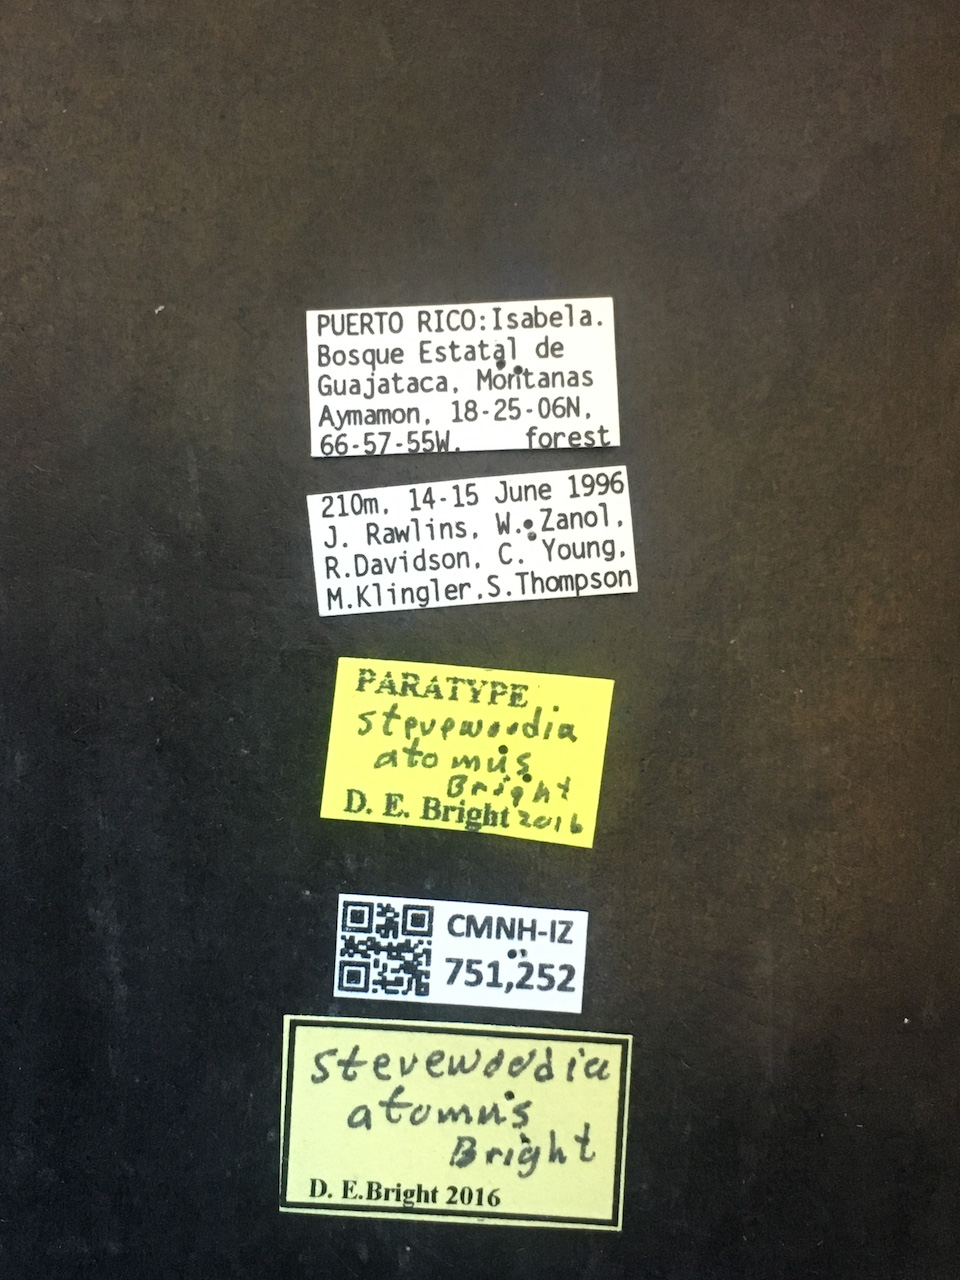 PUERTO RICO:Isabela.
Bosque Estatal de
Guajataca, Montanas
Aymamon, 18-25-06N,
66-57-55W, forest
210m, 14-15 June 1996
J. Rawlins, W. Zanol,
R.Davidson, C. Young,
M.Klingler,S.Thompson
PARATYPE
stevewoodia
atomus
Bright
D. E. Bright 2016
CMNH-IZ
751,252
stevewoodia
atomus
Bright
D. E.Bright 2016